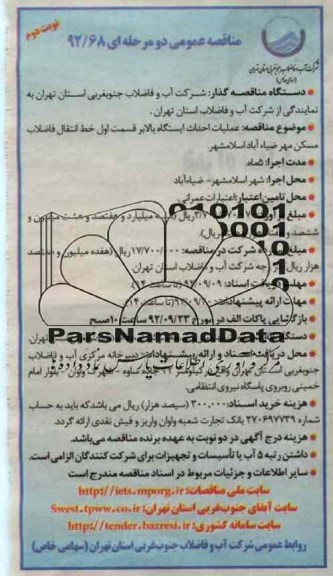 نوبت دوم
مناقصه عمومی دو مرحله ای ۹۲/۶۸
شرکت آب و فاضلاب جنوبغربی استان تهران
(سهامی خاص)
● دستگاه مناقصه گذار: شرکت آب و فاضلاب جنوبغربی استان تهران به
نمایندگی از شرکت آب و فاضلاب استان تهران.
● موضوع مناقصه: عملیات احداث ایستگاه بالابر قسمت اول خط انتقال فاضلاب
مسکن مهر ضیاء آباد اسلامشهر.
● مدت اجرا: ۵ ماه
● محل اجرا: شهر اسلامشهر- ضیاءآباد
● محل تامین اعتبار: اعتبارات عمرانی
ریال میلیارد و هفتصد و هشت میلیون و
ششصد و
شرکت در مناقصه: ۱۷/۷۰۰/۰۰۰ ریال (هفده میلیون و هفتصد
هزار ریال) شرکت آب و فاضلاب استان تهران
اسناد: ۹۲/۰۹/۰۹ (تا ساعت ۱۴)
● مهلت ارائه پیشنهادات: (تا ساعت ۱۴)
● بازگشایی پاکات الف در مورخ ۹۲/۰۹/۲۳ ساعت ۱۰ صبح
ParsNamadData
● دستگاه
● محل دریافت اسناد و ارائه پیشنهادات: دبیرخانه مرکزی آب و فاضلاب
جنوبغربی استان تهران واقع در کیلومتر جاده ساوه بلوار امام
خمینی روبروی پاسگاه نیروی انتظامی.
● هزینه خرید اسناد: ۳۰۰.۰۰۰ (سیصد هزار) ریال می باشد که باید به حساب
شماره ۲۷۰۶۹۷۷۳۹ بانک تجارت شعبه واوان واریز و فیش نقدی ارائه گردد.
● هزینه درج آگهی در دو نوبت به عهده برنده مناقصه می‌باشد.
● داشتن رتبه ۵ آب یا تأسیسات و تجهیزات برای شرکت کنندگان الزامی است.
● سایر اطلاعات و جزئیات مربوط در اسناد مناقصه مندرج است
سایت ملی مناقصات: http://iets.mporg.ir
سایت آبفای جنوب‌غربی استان تهران: Swest.tpww.co.ir
سایت سامانه کشوری: http://tender.bazresi.ir
روابط عمومی شرکت آب و فاضلاب جنوب‌غربی استان تهران (سهامی خاص)